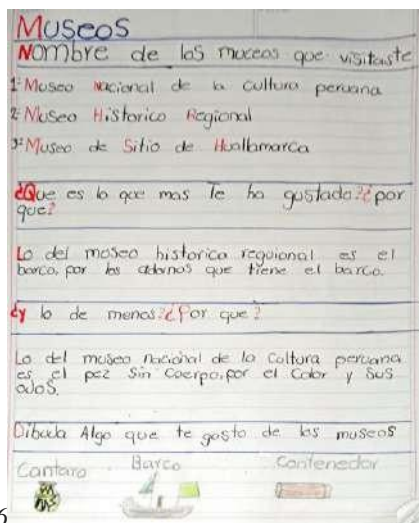 Museos
Nombre de los muceos que visitaste
1º Museo Nacional de la cultura peruana
2º Museo Historico Regional
3º Museo de Sitio de Huallamarca
¿Que es lo que mas te ha gustado?¿por
que?
Lo del moseo historico reguional es el
barco, por los adornos que tiene el barco.
¿y lo de menos?¿Por que?
Lo del museo nacional de la coltura peruana
es el pez sin coerpo, por el color y sus
odos.
Dibuda Algo que te gosto de los museos
Cantaro Barco Contenedor
6